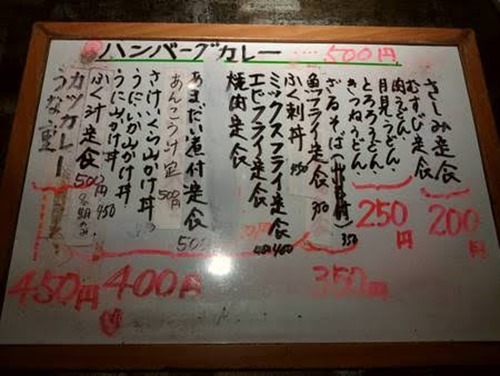 ハンバーグカレー ‥‥ 500円
さしみ定食
むすび定食
200円
肉うどん・
月見うどん・
とろろうどん・
きつねうどん・
250円
ざるそば
350
魚フライ定食 350
ふく刺丼 450
ミックスフライ定食 400
エビフライ定食
焼肉定食
350円
あまだい煮付定食 500
あんこう汁定 500円
さけいくら山かけ丼
うにいか山かけ丼
うに山かけ丼
400円
ふく汁定食 500円
450
カツカレー
うな重
450円